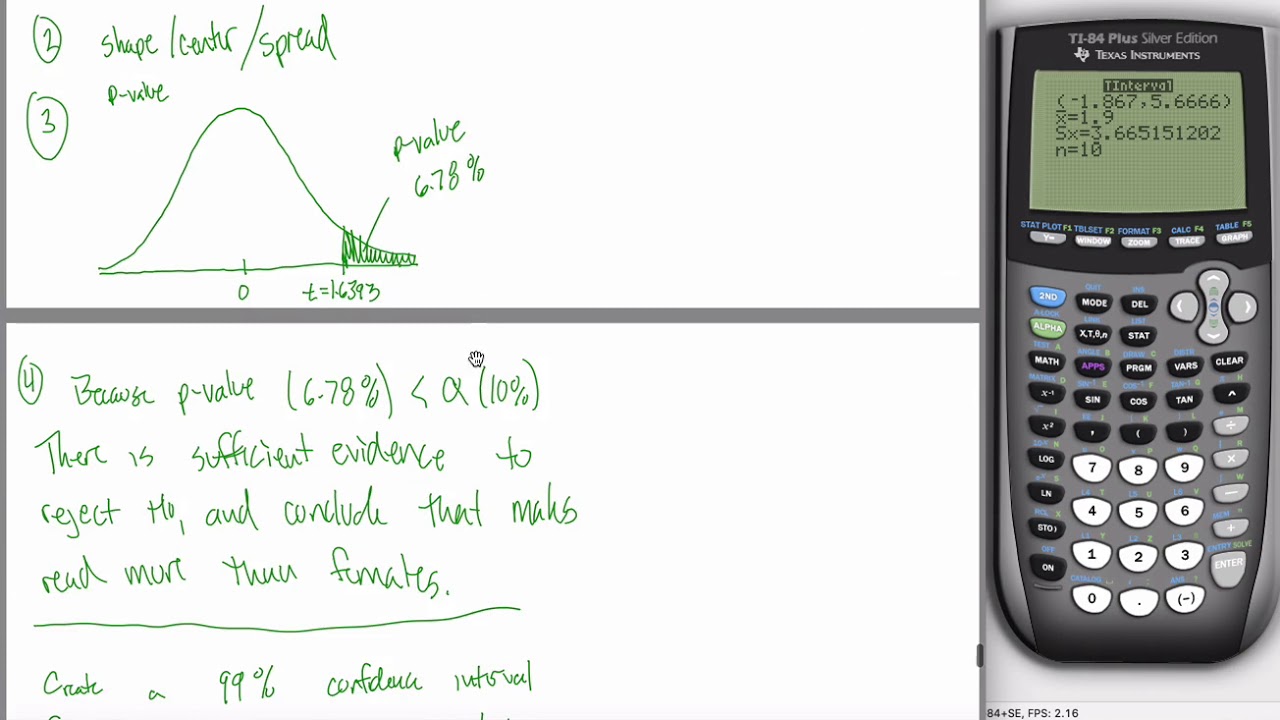 2 shape/center/spread
3 p-value
p-value
6.78%
0 t=1.6393
4 Because p-value (6.78%) < α (10%)
There is sufficient evidence to
reject Ho, and conclude that males
read more than females.
Create a 99% confidence interval
TI-84 Plus Silver Edition
TEXAS INSTRUMENTS
TInterval
(-1.867,5.6666)
x̄=1.9
Sx=3.665151202
n=10
STAT PLOT F1 TBLSET F2 FORMAT F3 CALC F4 TABLE F5
Y= WINDOW ZOOM TRACE GRAPH
QUIT INS
2ND MODE DEL
A-LOCK LINK LIST
ALPHA X,T,θ,n STAT
TEST A ANGLE B DRAW C DISTR
MATH APPS PRGM VARS CLEAR
MATRIX D SIN⁻¹ E COS⁻¹ F TAN⁻¹ G π H
x⁻¹ SIN COS TAN ^
x² , ( ) ÷
LOG 7 8 9 ×
LN 4 5 6 −
RCL X
STO› 1 2 3 +
OFF CATALOG ANS ? ENTRY SOLVE
ON 0 . (-) ENTER
84+SE, FPS: 2.16